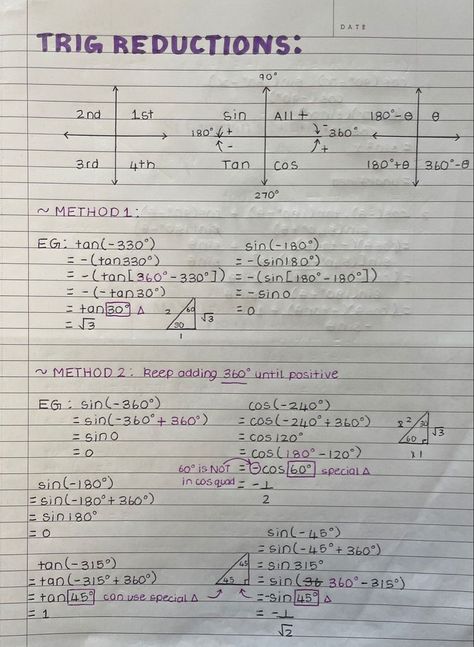 DATE
TRIG REDUCTIONS:
90°
2nd 1st
3rd 4th
sin All +
180° + - 360°
- +
Tan cos
270°
180°-θ θ
180°+θ 360°-θ
~ METHOD 1:
EG: tan(-330°)
= -(tan330°)
= -(tan[360°-330°])
= -(-tan30°)
= tan 30° Δ
= √3
2 60 √3
30
1
sin(-180°)
= -(sin180°)
= -(sin[180°-180°])
= -sin0
= 0
~ METHOD 2: Keep adding 360° until positive
EG: sin(-360°)
= sin(-360°+360°)
= sin0
= 0
cos(-240°)
= cos(-240°+360°)
= cos120°
= cos(180°-120°)
= -cos 60° special Δ
= -1
2
60° is NOT
in cos quad
2 30 √3
60
1
sin(-180°)
= sin(-180°+360°)
= sin180°
= 0
tan(-315°)
= tan(-315°+360°)
= tan 45° can use special Δ
= 1
45
45
sin(-45°)
= sin(-45°+360°)
= sin315°
= sin(36 360°-315°)
= -sin 45° Δ
= -1
√2